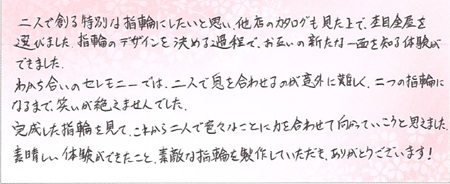 二人で創る特別な指輪にしたいと思い、他店のカタログも見た上で、杢目金屋を
選びました。指輪のデザインを決める過程で、お互いの新たな一面を知る体験が
できました。
わかち合いのセレモニーでは、二人で息を合わせるのが意外に難しく、二つの指輪に
なるまで、笑いが絶えませんでした。
完成した指輪を見て、これから二人で色々なことに力を合わせて向かっていこうと思えました。
素晴しい体験ができたこと、素敵な指輪を製作していただき、ありがとうございます!